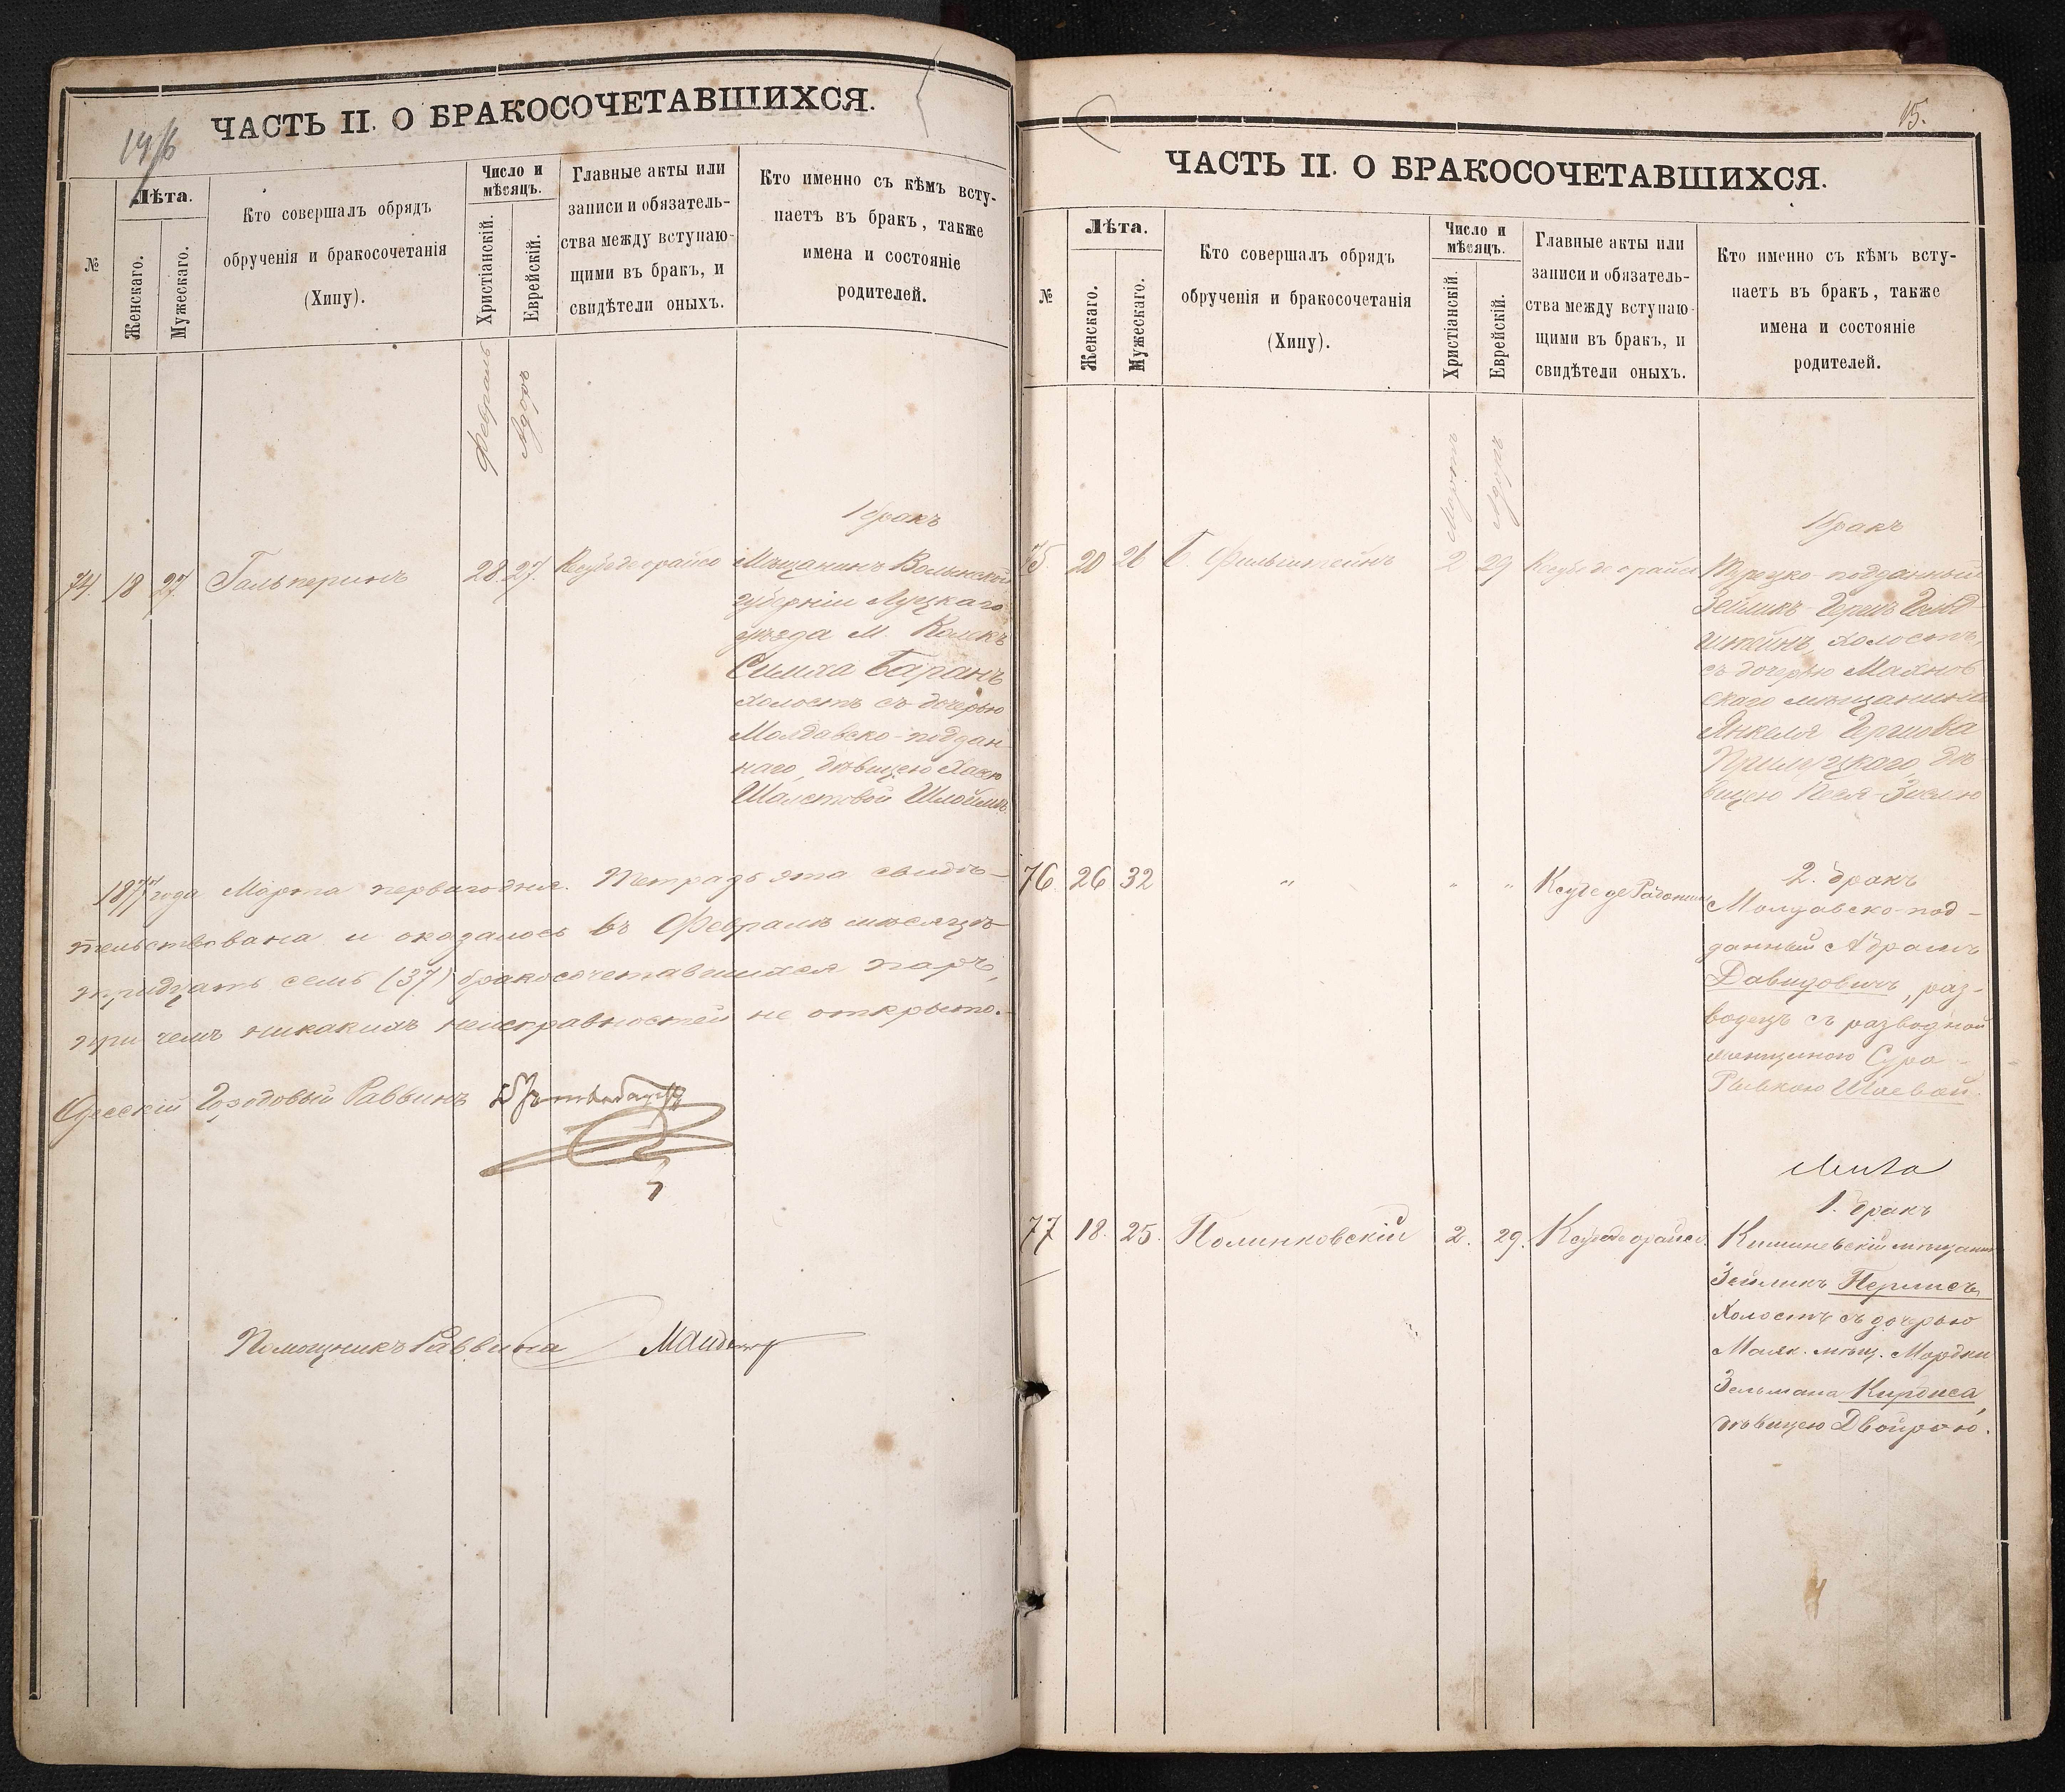 ЧАСТЬ II. О БРАКОСОЧЕТАВШИХСЯ.
№
Лѣта.
Женскаго.
Мужескаго.
Кто совершалъ обрядъ
обрученія и бракосочетанія
(Хипу).
Число и
мѣсяцъ.
Христіанскій.
Еврейскій.
Главные акты или
записи и обязатель-
ства между вступаю-
щими въ бракъ, и
свидѣтели оныхъ.
Кто именно съ кѣмъ всту-
паетъ въ бракъ, также
имена и состояніе
родителей.
Февраль
Адоръ
1 бракъ
74. 18 27. Гальперинъ 28. 27. Мѣщанинъ Волынской
губерніи Луцкаго
уѣзда М. Колкъ
Симха Баранъ
холостъ съ дочерью
Молдавско-поддан-
наго, дѣвицею Хаею
1877 года Марта перваго дня. Тетрадь эта свидѣ-
тельствована и оказалось въ Февралѣ мѣсяцѣ
тридцать семь (37) бракосочетавшихся паръ,
при чемъ никакихъ неисправностей не открыто.
Одесскій Городовый Раввинъ
Помощникъ Раввина
15.
ЧАСТЬ II. О БРАКОСОЧЕТАВШИХСЯ.
№
Лѣта.
Женскаго.
Мужескаго.
Кто совершалъ обрядъ
обрученія и бракосочетанія
(Хипу).
Число и
мѣсяцъ.
Христіанскій.
Еврейскій.
Главные акты или
записи и обязатель-
ства между вступаю-
щими въ бракъ, и
свидѣтели оныхъ.
Кто именно съ кѣмъ всту-
паетъ въ бракъ, также
имена и состояніе
родителей.
Мартъ
Адоръ
1 бракъ
75. 20 26 Фильштейнъ 2 29 Турецко-подданный
Зейликъ-Гершъ Гольд-
штейнъ, холостъ,
съ дочерью Махнов-
скаго мѣщанина
Янкеля Гершова
Прилуцкаго, дѣ-
вицею Песя-Зислею
2. бракъ
76. 26 32 " " " Молдавско-под-
данный Абрамъ
Давидовичъ, раз-
водецъ съ разводной
женщиною Сура-
Рывкою Шаевой.
1. бракъ
77 18. 25. Полинковскій 2. 29. Кишиневскій мѣщанинъ
Зейликъ Перлисъ,
холостъ съ дочерью
Маяк. мѣщ. Мордки
Зельмана Кирбиса,
дѣвицею Двойрою.